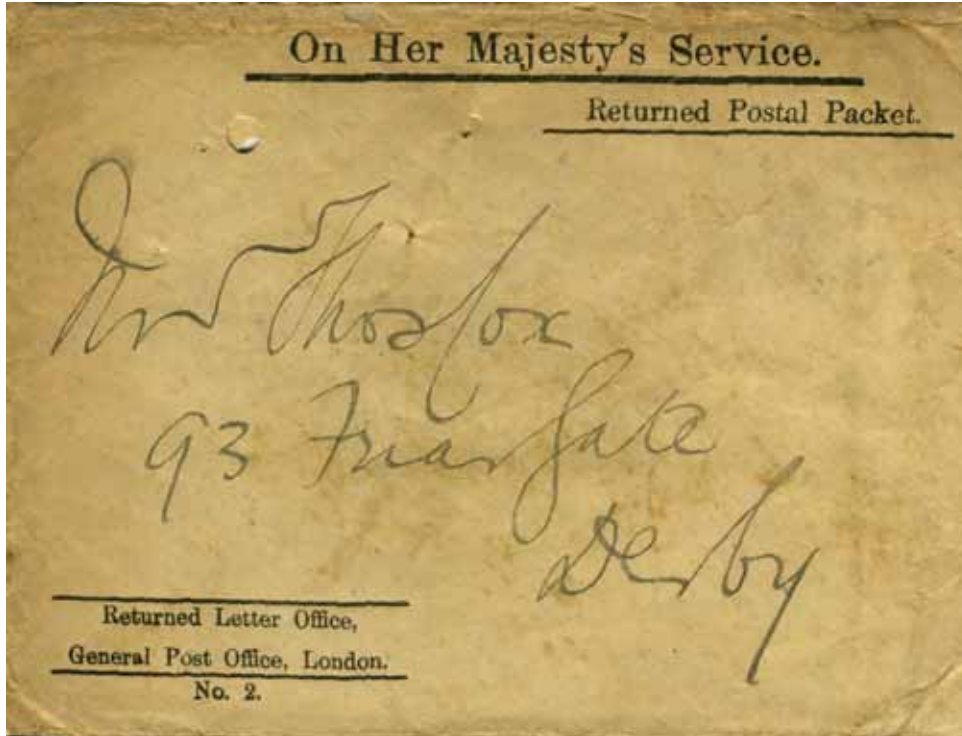 On Her Majesty's Service.
Returned Postal Packet.
Mrs Thos Fox
93 Friar Gate
Derby
Returned Letter Office,
General Post Office, London.
No. 2.